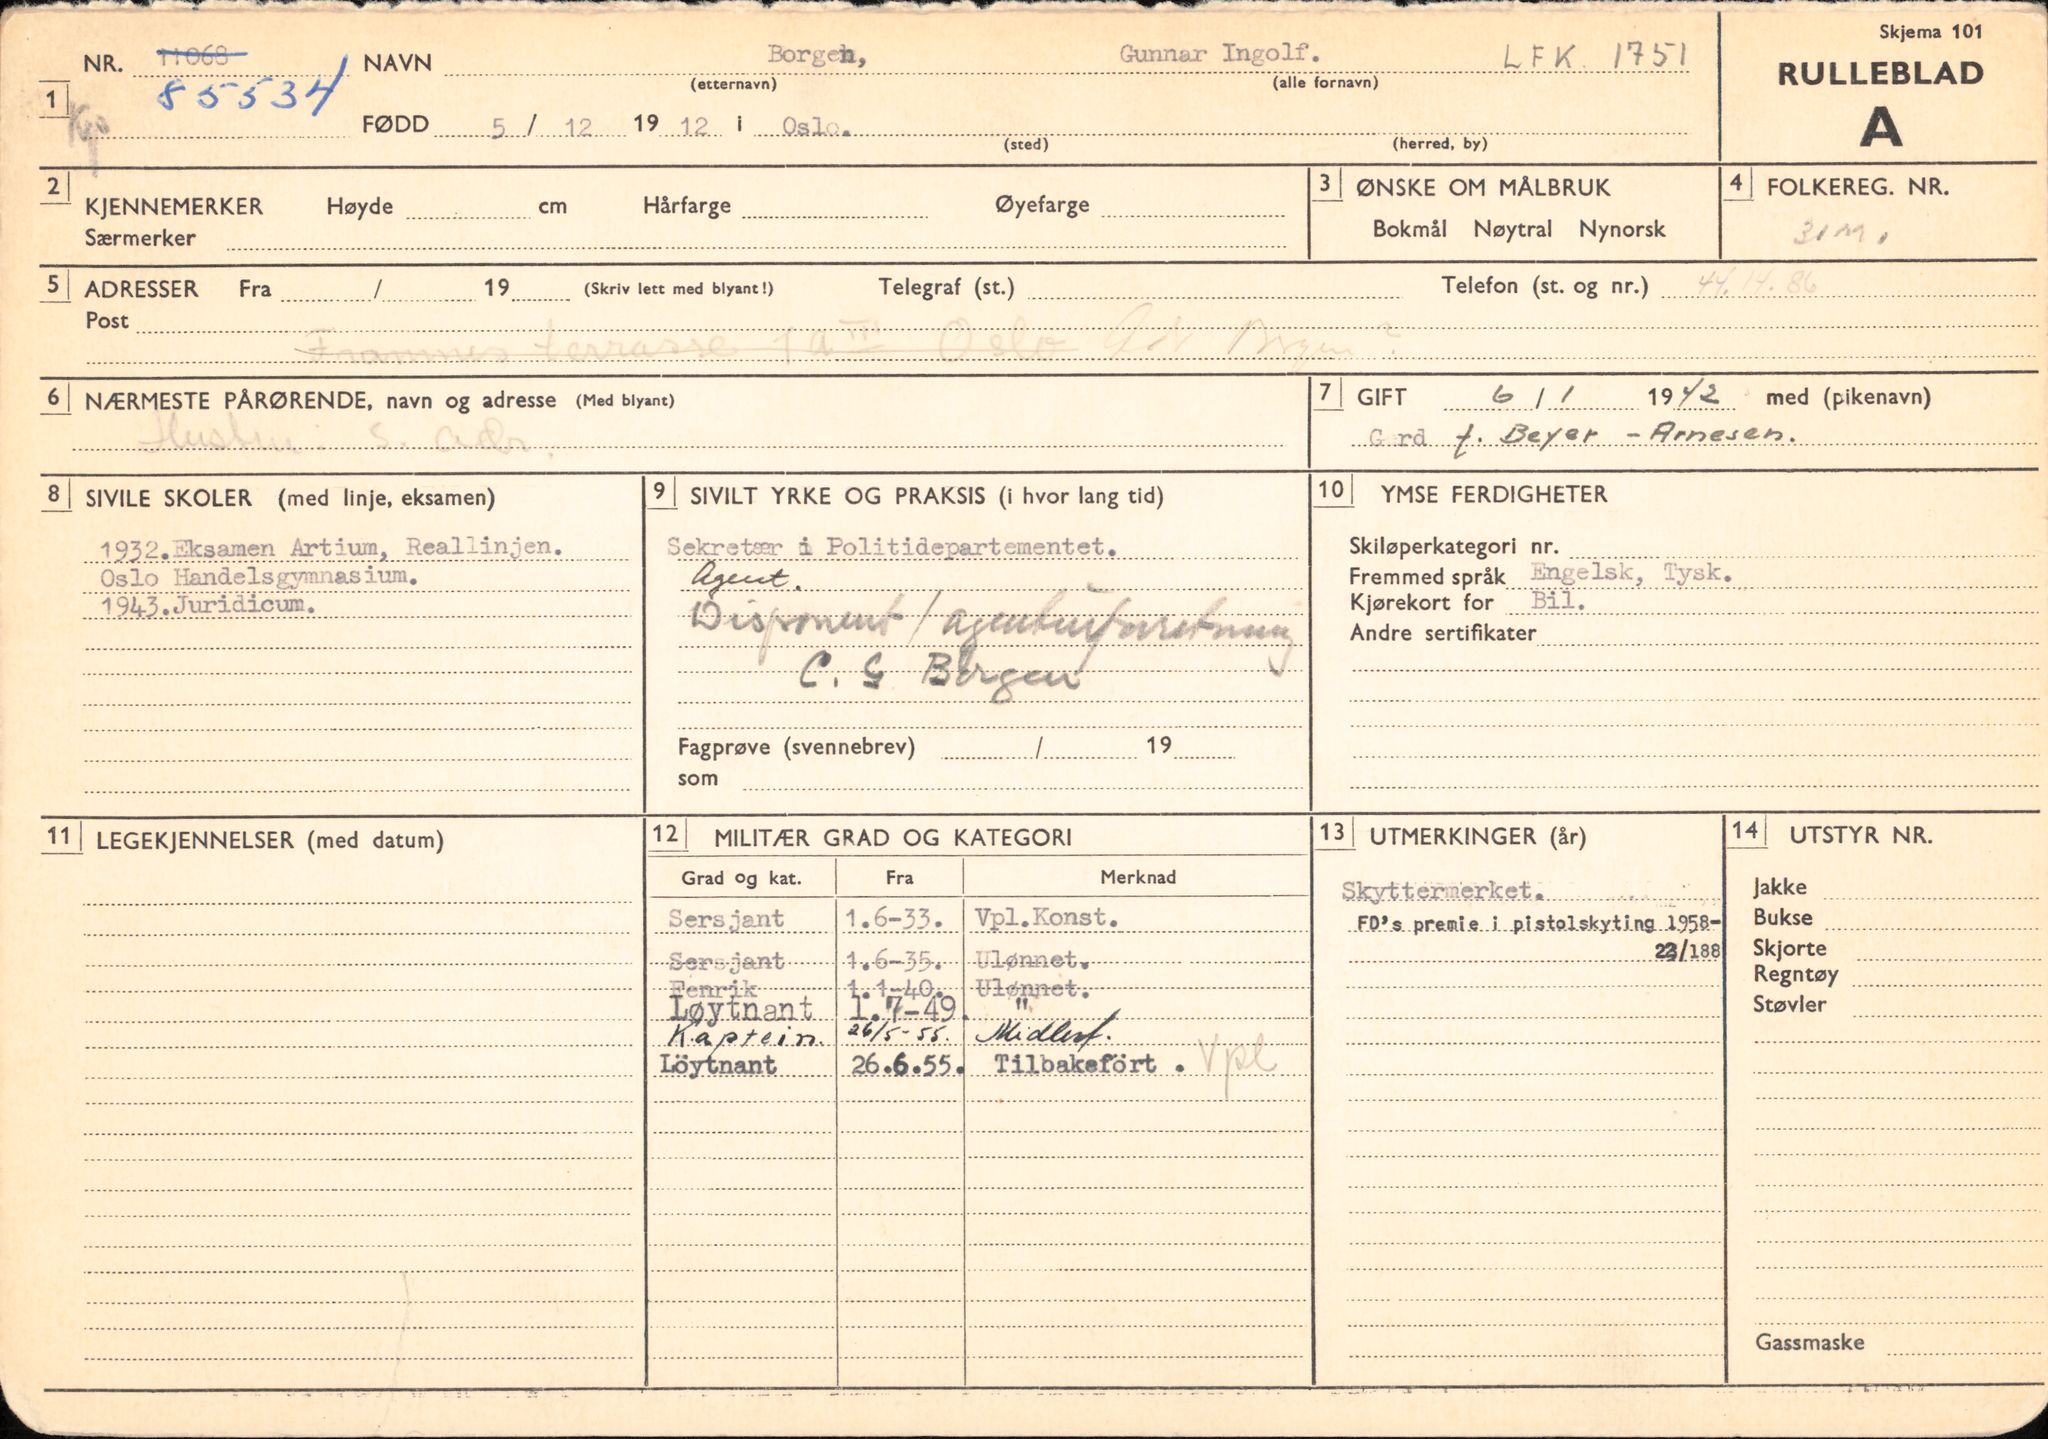 Skjema 101
RULLEBLAD
A
1 NR. 11068 NAVN Borgen, Gunnar Ingolf. LFK. 1751
85534 (etternavn) (alle fornavn)
FØDD 5 / 12 19 12 i Oslo.
(sted) (herred, by)
2 KJENNEMERKER Høyde cm Hårfarge Øyefarge
Særmerker
3 ØNSKE OM MÅLBRUK
Bokmål Nøytral Nynorsk
4 FOLKEREG. NR.
5 ADRESSER Fra / 19 (Skriv lett med blyant!) Telegraf (st.) Telefon (st. og nr.) 44.14.86
Post
terrasse 1a III Oslo
6 NÆRMESTE PÅRØRENDE, navn og adresse (Med blyant)
Hustru: s. adr.
7 GIFT 6 / 1 19 42 med (pikenavn)
Gerd f. Beyer - Arnesen.
8 SIVILE SKOLER (med linje, eksamen)
1932. Eksamen Artium, Reallinjen.
Oslo Handelsgymnasium.
1943. Juridicum.
9 SIVILT YRKE OG PRAKSIS (i hvor lang tid)
Sekretær i Politidepartementet.
Agent.
Disponent / agenturforretning
C. G Borgen
Fagprøve (svennebrev) / 19
som
10 YMSE FERDIGHETER
Skiløperkategori nr.
Fremmed språk Engelsk, Tysk.
Kjørekort for Bil.
Andre sertifikater
11 LEGEKJENNELSER (med datum)
12 MILITÆR GRAD OG KATEGORI
Grad og kat. Fra Merknad
Sersjant 1.6-33. Vpl.Konst.
Sersjant 1.6-35. Ulønnet.
Fenrik 1.1-40. Ulønnet.
Løytnant 1.7-49. "
Kaptein. 26/5-55. Midlert.
Löytnant 26.6.55. Tilbakefört . Vpl
13 UTMERKINGER (år)
Skyttermerket.
FD's premie i pistolskyting 1958-
23/188
14 UTSTYR NR.
Jakke
Bukse
Skjorte
Regntøy
Støvler
Gassmaske